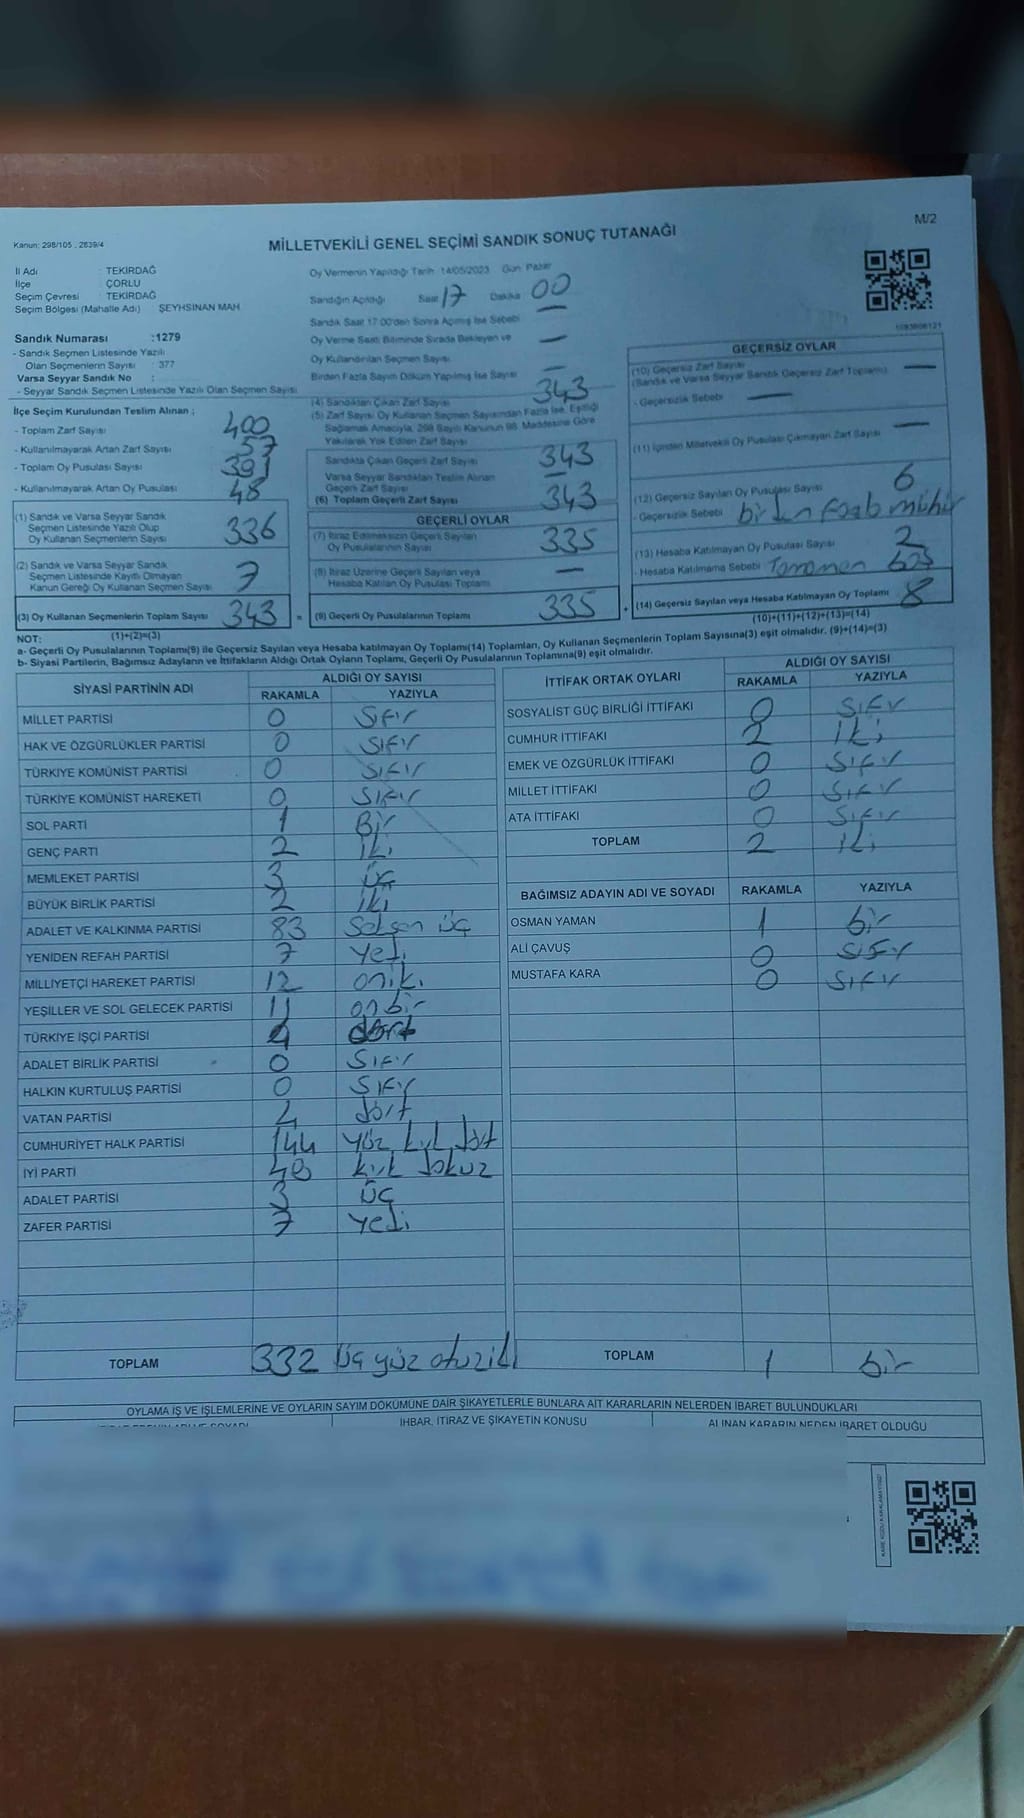 M/2
Kanun: 298/105 , 2839/4
MİLLETVEKİLİ GENEL SEÇİMİ SANDIK SONUÇ TUTANAĞI
İl Adı : TEKİRDAĞ
İlçe : ÇORLU
Seçim Çevresi : TEKİRDAĞ
Seçim Bölgesi (Mahalle Adı) : ŞEYHSİNAN MAH
Sandık Numarası :1279
- Sandık Seçmen Listesinde Yazılı
Olan Seçmenlerin Sayısı : 377
Varsa Seyyar Sandık No :
- Seyyar Sandık Seçmen Listesinde Yazılı Olan Seçmen Sayısı:
İlçe Seçim Kurulundan Teslim Alınan ;
- Toplam Zarf Sayısı 400
- Kullanılmayarak Artan Zarf Sayısı 57
- Toplam Oy Pusulası Sayısı 391
- Kullanılmayarak Artan Oy Pusulası 48
(1) Sandık ve Varsa Seyyar Sandık
Seçmen Listesinde Yazılı Olup
Oy Kullanan Seçmenlerin Sayısı 336
(2) Sandık ve Varsa Seyyar Sandık
Seçmen Listesinde Kayıtlı Olmayan
Kanun Gereği Oy Kullanan Seçmen Sayısı 7
(3) Oy Kullanan Seçmenlerin Toplam Sayısı 343 =
Oy Vermenin Yapıldığı Tarih :14/05/2023 Gün: Pazar
Sandığın Açıldığı Saat 17 Dakika 00
Sandık Saat 17:00'den Sonra Açılmış İse Sebebi —
Oy Verme Saati Bitiminde Sırada Bekleyen ve —
Oy Kullandırılan Seçmen Sayısı
Birden Fazla Sayım Döküm Yapılmış İse Sayısı —
(4) Sandıktan Çıkan Zarf Sayısı 343
(5) Zarf Sayısı Oy Kullanan Seçmen Sayısından Fazla İse, Eşitliği
Sağlamak Amacıyla, 298 Sayılı Kanunun 98. Maddesine Göre
Yakılarak Yok Edilen Zarf Sayısı
Sandıkta Çıkan Geçerli Zarf Sayısı 343
Varsa Seyyar Sandıktan Teslim Alınan
Geçerli Zarf Sayısı —
(6) Toplam Geçerli Zarf Sayısı 343
GEÇERLİ OYLAR
(7) İtiraz Edilmeksizin Geçerli Sayılan
Oy Pusulalarının Sayısı 335
(8) İtiraz Üzerine Geçerli Sayılan veya
Hesaba Katılan Oy Pusulası Toplamı —
(9) Geçerli Oy Pusulalarının Toplamı 335 +
GEÇERSİZ OYLAR
(10) Geçersiz Zarf Sayısı
(Sandık ve Varsa Seyyar Sandık Geçersiz Zarf Toplamı) —
- Geçersizlik Sebebi : —
(11) İçinden Milletvekili Oy Pusulası Çıkmayan Zarf Sayısı —
(12) Geçersiz Sayılan Oy Pusulası Sayısı 6
- Geçersizlik Sebebi : birden fazla mühür
(13) Hesaba Katılmayan Oy Pusulası Sayısı 2
- Hesaba Katılmama Sebebi : Tamamen
(14) Geçersiz Sayılan veya Hesaba Katılmayan Oy Toplamı 8
(10)+(11)+(12)+(13)=(14)
NOT: (1)+(2)=(3)
a- Geçerli Oy Pusulalarının Toplamı(9) ile Geçersiz Sayılan veya Hesaba katılmayan Oy Toplamı(14) Toplamları, Oy Kullanan Seçmenlerin Toplam Sayısına(3) eşit olmalıdır. (9)+(14)=(3)
b- Siyasi Partilerin, Bağımsız Adayların ve İttifakların Aldığı Ortak Oyların Toplamı, Geçerli Oy Pusulalarının Toplamına(9) eşit olmalıdır.
SİYASİ PARTİNİN ADI ALDIĞI OY SAYISI
RAKAMLA YAZIYLA
MİLLET PARTİSİ 0 Sıfır
HAK VE ÖZGÜRLÜKLER PARTİSİ 0 Sıfır
TÜRKİYE KOMÜNİST PARTİSİ 0 Sıfır
TÜRKİYE KOMÜNİST HAREKETİ 0 Sıfır
SOL PARTİ 1 Bir
GENÇ PARTİ 2 iki
MEMLEKET PARTİSİ 3 üç
BÜYÜK BİRLİK PARTİSİ 2 iki
ADALET VE KALKINMA PARTİSİ 83 Seksen üç
YENİDEN REFAH PARTİSİ 7 yedi
MİLLİYETÇİ HAREKET PARTİSİ 12 oniki
YEŞİLLER VE SOL GELECEK PARTİSİ 11 onbir
TÜRKİYE İŞÇİ PARTİSİ 4 dört
ADALET BİRLİK PARTİSİ 0 Sıfır
HALKIN KURTULUŞ PARTİSİ 0 Sıfır
VATAN PARTİSİ 4 dört
CUMHURİYET HALK PARTİSİ 144 yüz kırk dört
İYİ PARTİ kırk dokuz
ADALET PARTİSİ 3 üç
ZAFER PARTİSİ 7 yedi
TOPLAM 332 üç yüz otuziki
İTTİFAK ORTAK OYLARI ALDIĞI OY SAYISI
RAKAMLA YAZIYLA
SOSYALİST GÜÇ BİRLİĞİ İTTİFAKI 0 Sıfır
CUMHUR İTTİFAKI 2 iki
EMEK VE ÖZGÜRLÜK İTTİFAKI 0 Sıfır
MİLLET İTTİFAKI 0 Sıfır
ATA İTTİFAKI 0 Sıfır
TOPLAM 2 iki
BAĞIMSIZ ADAYIN ADI VE SOYADI RAKAMLA YAZIYLA
OSMAN YAMAN 1 bir
ALİ ÇAVUŞ 0 Sıfır
MUSTAFA KARA 0 Sıfır
TOPLAM 1 bir
OYLAMA İŞ VE İŞLEMLERİNE VE OYLARIN SAYIM DÖKÜMÜNE DAİR ŞİKAYETLERLE BUNLARA AİT KARARLARIN NELERDEN İBARET BULUNDUKLARI
İHBAR, İTİRAZ VE ŞİKAYETİN KONUSU
ALINAN KARARIN NEDEN İBARET OLDUĞU